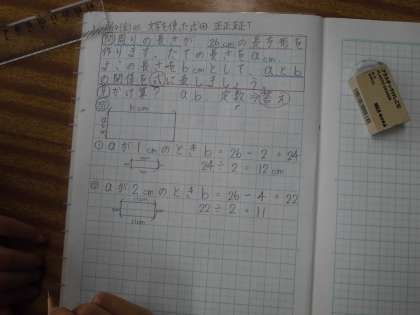 文字を使った式 正正正T
問 周りの長さが 26cmの長方形を
作ります。たての長さをacm、
よこの長さをbcmとして、aとb
の関係を式に表しましょう。
予 かけ算? ab 定数 今答え
図
bcm
① aが1cmのとき b = 26 - 2 = 24
24 ÷ 2 = 12cm
② aが2cmのとき b = 26 - 4 = 22
22 ÷ 2 = 11
11cm